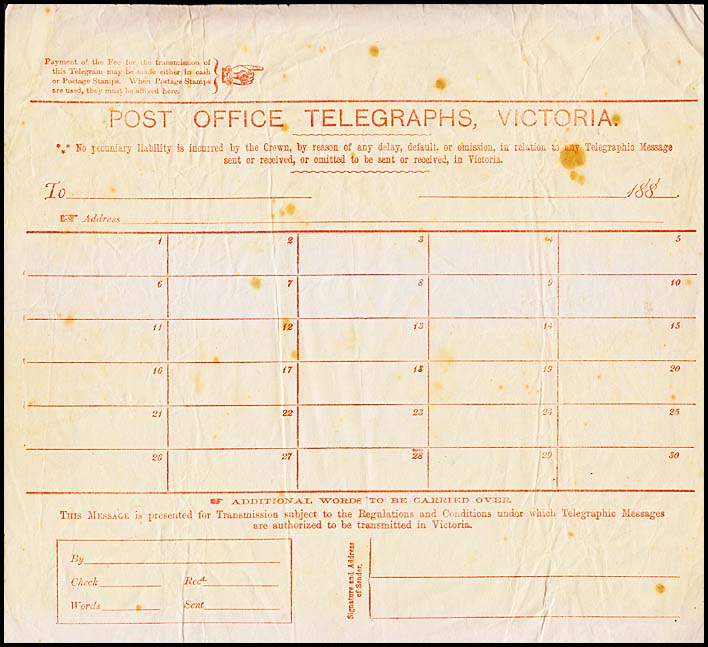 Payment of the Fee for the transmission of
this Telegram may be made either in cash
or Postage Stamps. When Postage Stamps
are used, they must be affixed here.
POST OFFICE TELEGRAPHS, VICTORIA.
*⁎* No pecuniary liability is incurred by the Crown, by reason of any delay, default, or omission, in relation to any Telegraphic Message
sent or received, or omitted to be sent or received, in Victoria.
To 188
Address
1 2 3 4 5
6 7 8 9 10
11 12 13 14 15
16 17 18 19 20
21 22 23 24 25
26 27 28 29 30
☞ ADDITIONAL WORDS TO BE CARRIED OVER.
THIS MESSAGE is presented for Transmission subject to the Regulations and Conditions under which Telegraphic Messages
are authorized to be transmitted in Victoria.
By
Check Recd.
Words Sent
Signature and Address
of Sender.